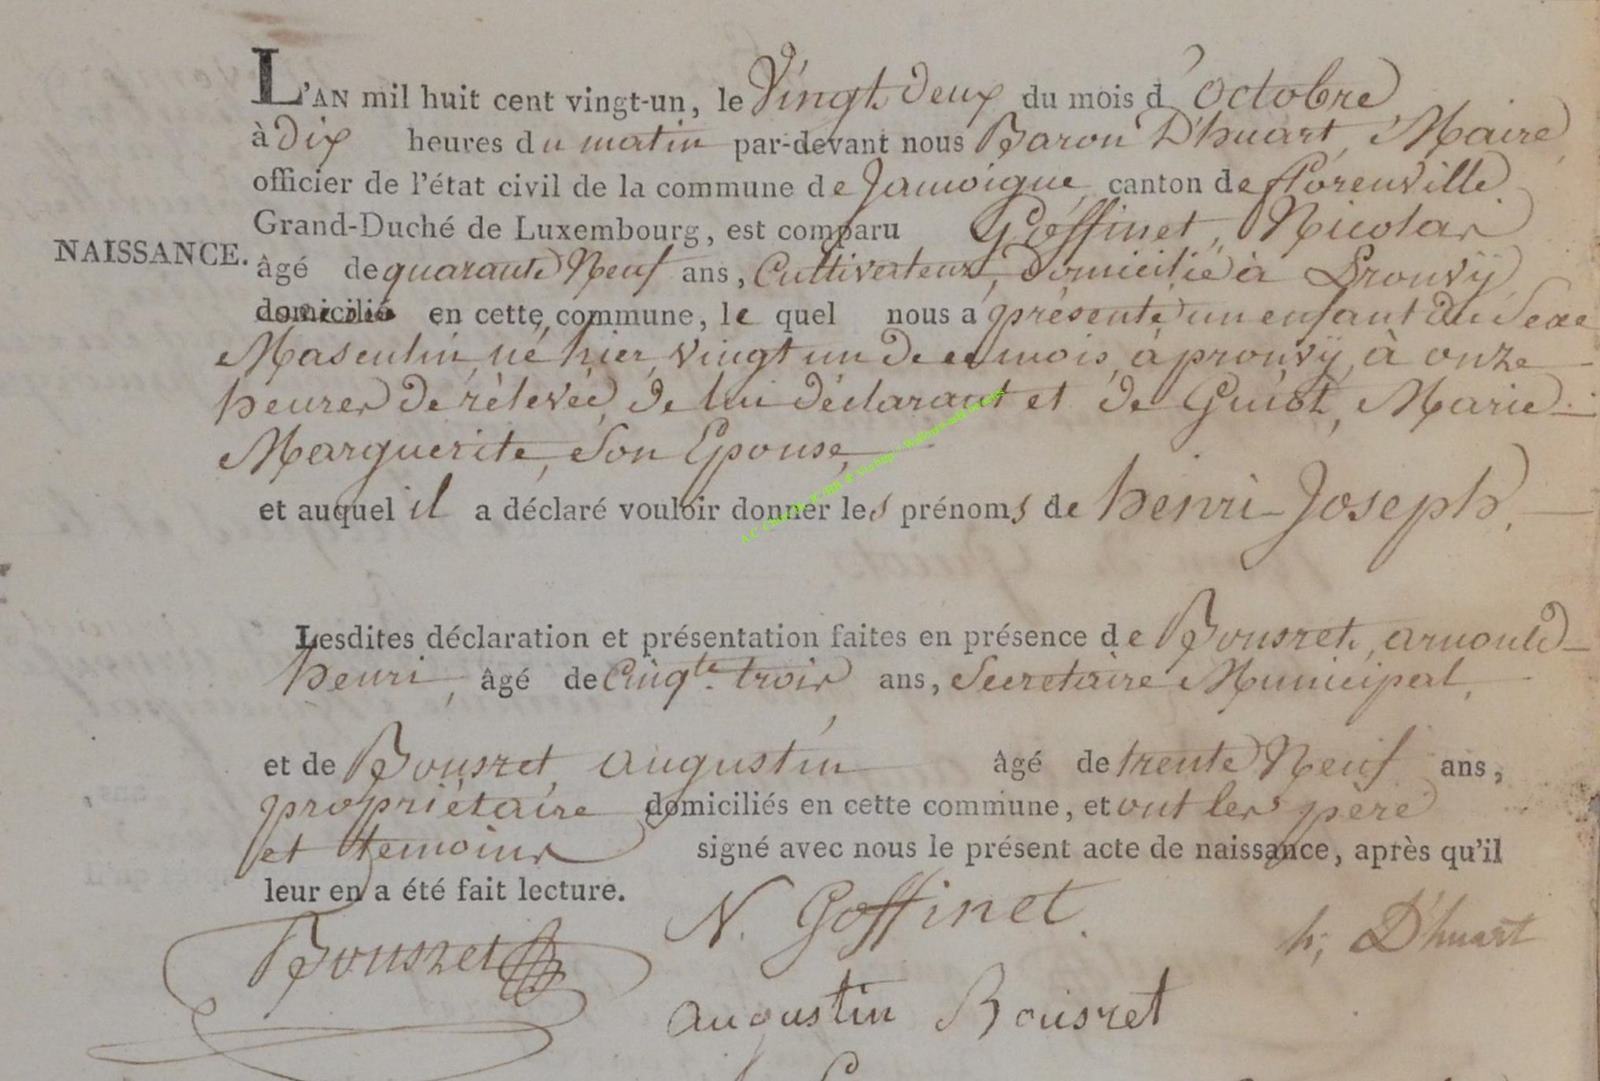 L'AN mil huit cent vingt-un, le Vingt Deux du mois d'Octobre
à Dix heures du matin par-devant nous Baron D'huart, Maire,
officier de l'état civil de la commune de Jamoigne, canton de florenville
Grand-Duché de Luxembourg, est comparu Goffinet, Nicolas
NAISSANCE.
âgé de quarante Neuf ans, Cultivateur, Domicilié à Prouvÿ
domicilié en cette commune, le quel nous a présenté un enfant du Sexe
Masculin, né hier, vingt un De ce mois, à prouvÿ, à onze
heures De rélevée, De lui Déclarant et De Guiot, Marie
Marguerite, Son Epouse,
et auquel il a déclaré vouloir donner les prénoms de henri-Joseph.
Lesdites déclaration et présentation faites en présence de Bousret, arnould
henri, âgé de Cinqte trois ans, Secretaire Municipal,
et de Bousret augustin âgé de trente Neuf ans,
propriétaire domiciliés en cette commune, et ont les père
et temoins signé avec nous le présent acte de naissance, après qu'il
leur en a été fait lecture.
N. Goffinet.
h; D'huart
Bousret
augustin Bousret